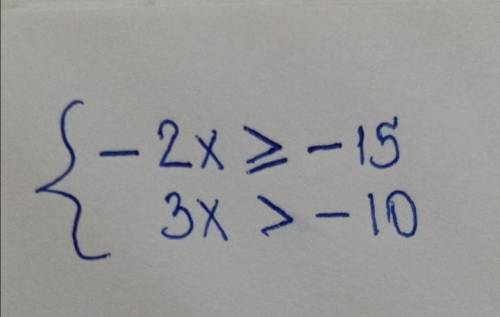 { - 2x ≥ -15
3x > -10